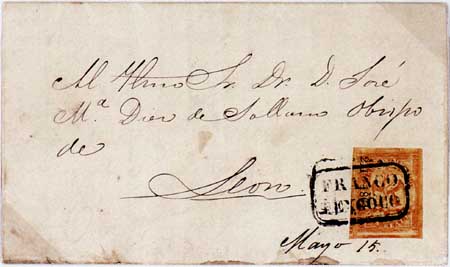 Al Illmo Sr. Dr. D. José
Mª Diez de Sollano Obispo
de
Leon.
FRANCO
PENJAMO
Mayo 15.